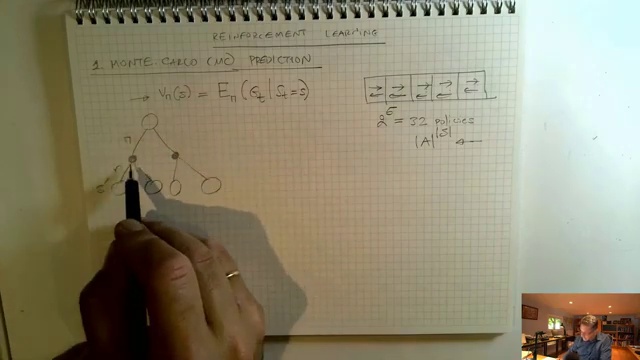 REINFORCEMENT LEARNING
1 MONTE CARLO (MC) PREDICTION
→ Vπ(s) = Eπ(Gt | St = s)
2^5 = 32 policies
|A|^|S| ←
π